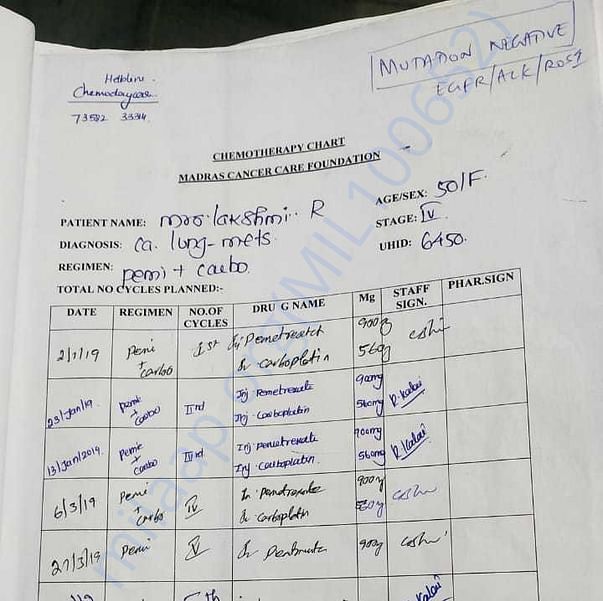 Helpline.
Chemodaycare
73582 33314
MUTATION NEGATIVE
EGFR/ALK/ROS1
CHEMOTHERAPY CHART
MADRAS CANCER CARE FOUNDATION
PATIENT NAME: Mrs. Lakshmi. R
AGE/SEX: 50/F.
DIAGNOSIS: Ca. lung-mets.
STAGE: IV
REGIMEN: pemi + carbo.
UHID: 6450.
TOTAL NO CYCLES PLANNED:-
DATE REGIMEN NO.OF CYCLES DRUG NAME Mg STAFF SIGN. PHAR.SIGN
2/1/19 Pemi + carbo Ist Inj Pemetrexate 900mg
Inj Carboplatin 560mg
23/Jan/19. Pemie + carbo IInd Inj. Pemetrexate 900mg R.Kalai
Inj. Carboplatin 560mg
13/Jan/2019. Pemie + carbo IIIrd Inj. Pemetrexate 900mg R.Kalai
Inj. Carboplatin. 560mg
6/3/19 Pemi + Carbo IV In Pemetrexate 900mg
In Carboplatin 560mg
27/3/19 Pemi V 900mg
milaap.org(MIL100652)